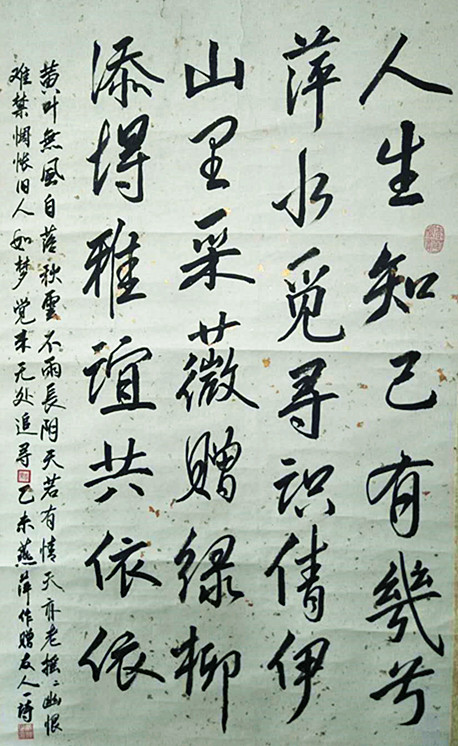 人生知己有幾兮
萍水觅寻识倩伊
山里采薇赠绿柳
添得雅谊共依依
黄叶無風自落秋雲不雨長阴天若有情天亦老摇〻幽恨
难禁惆怅旧人如梦觉来无处追寻 乙未燕萍作赠友人一诗